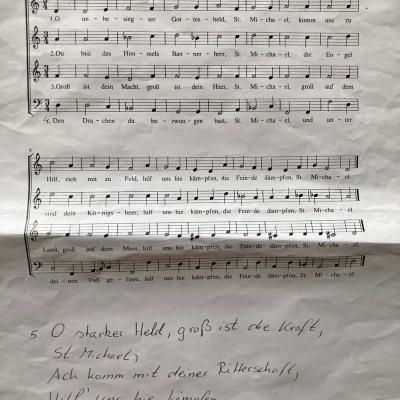 1.O un - be - sing - ter Got - tes - held, St. Mi - cha - el, komm uns zu
2.Du bist des Him - mels Ban - ner - herr, St. Mi - cha - el, die En - gel
3.Groß ist dein Macht, groß ist dein Heer, St. Mi - cha - el, groß auf dem
4. Den Dra - chen du be - zwun - gen hast, St. Mi - cha - el, und un - ter
Hilf, zieh mit zu Feld, hilf uns hie kämp-fen, die Fein-de dämp-fen, St. Mi-cha - el.
sind dein Kö-nigs-heer, hilf uns hie kämp-fen, die Fein-de dämp-fen, St. Mi-cha-el.
Land, groß auf dem Meer, hilf uns hie kämp-fen, die Fein-de dämp-fen, St. Mi-cha - el.
dei-nen Fuß ge - fasst, hilf uns hie kämp-fen, die Fein-de dämp-fen, St. Mi-cha-el.
5. O starker Held, groß ist die Kraft,
St. Michael,
Ach komm mit deiner Ritterschaft,
Hilf' uns hie kämpfen